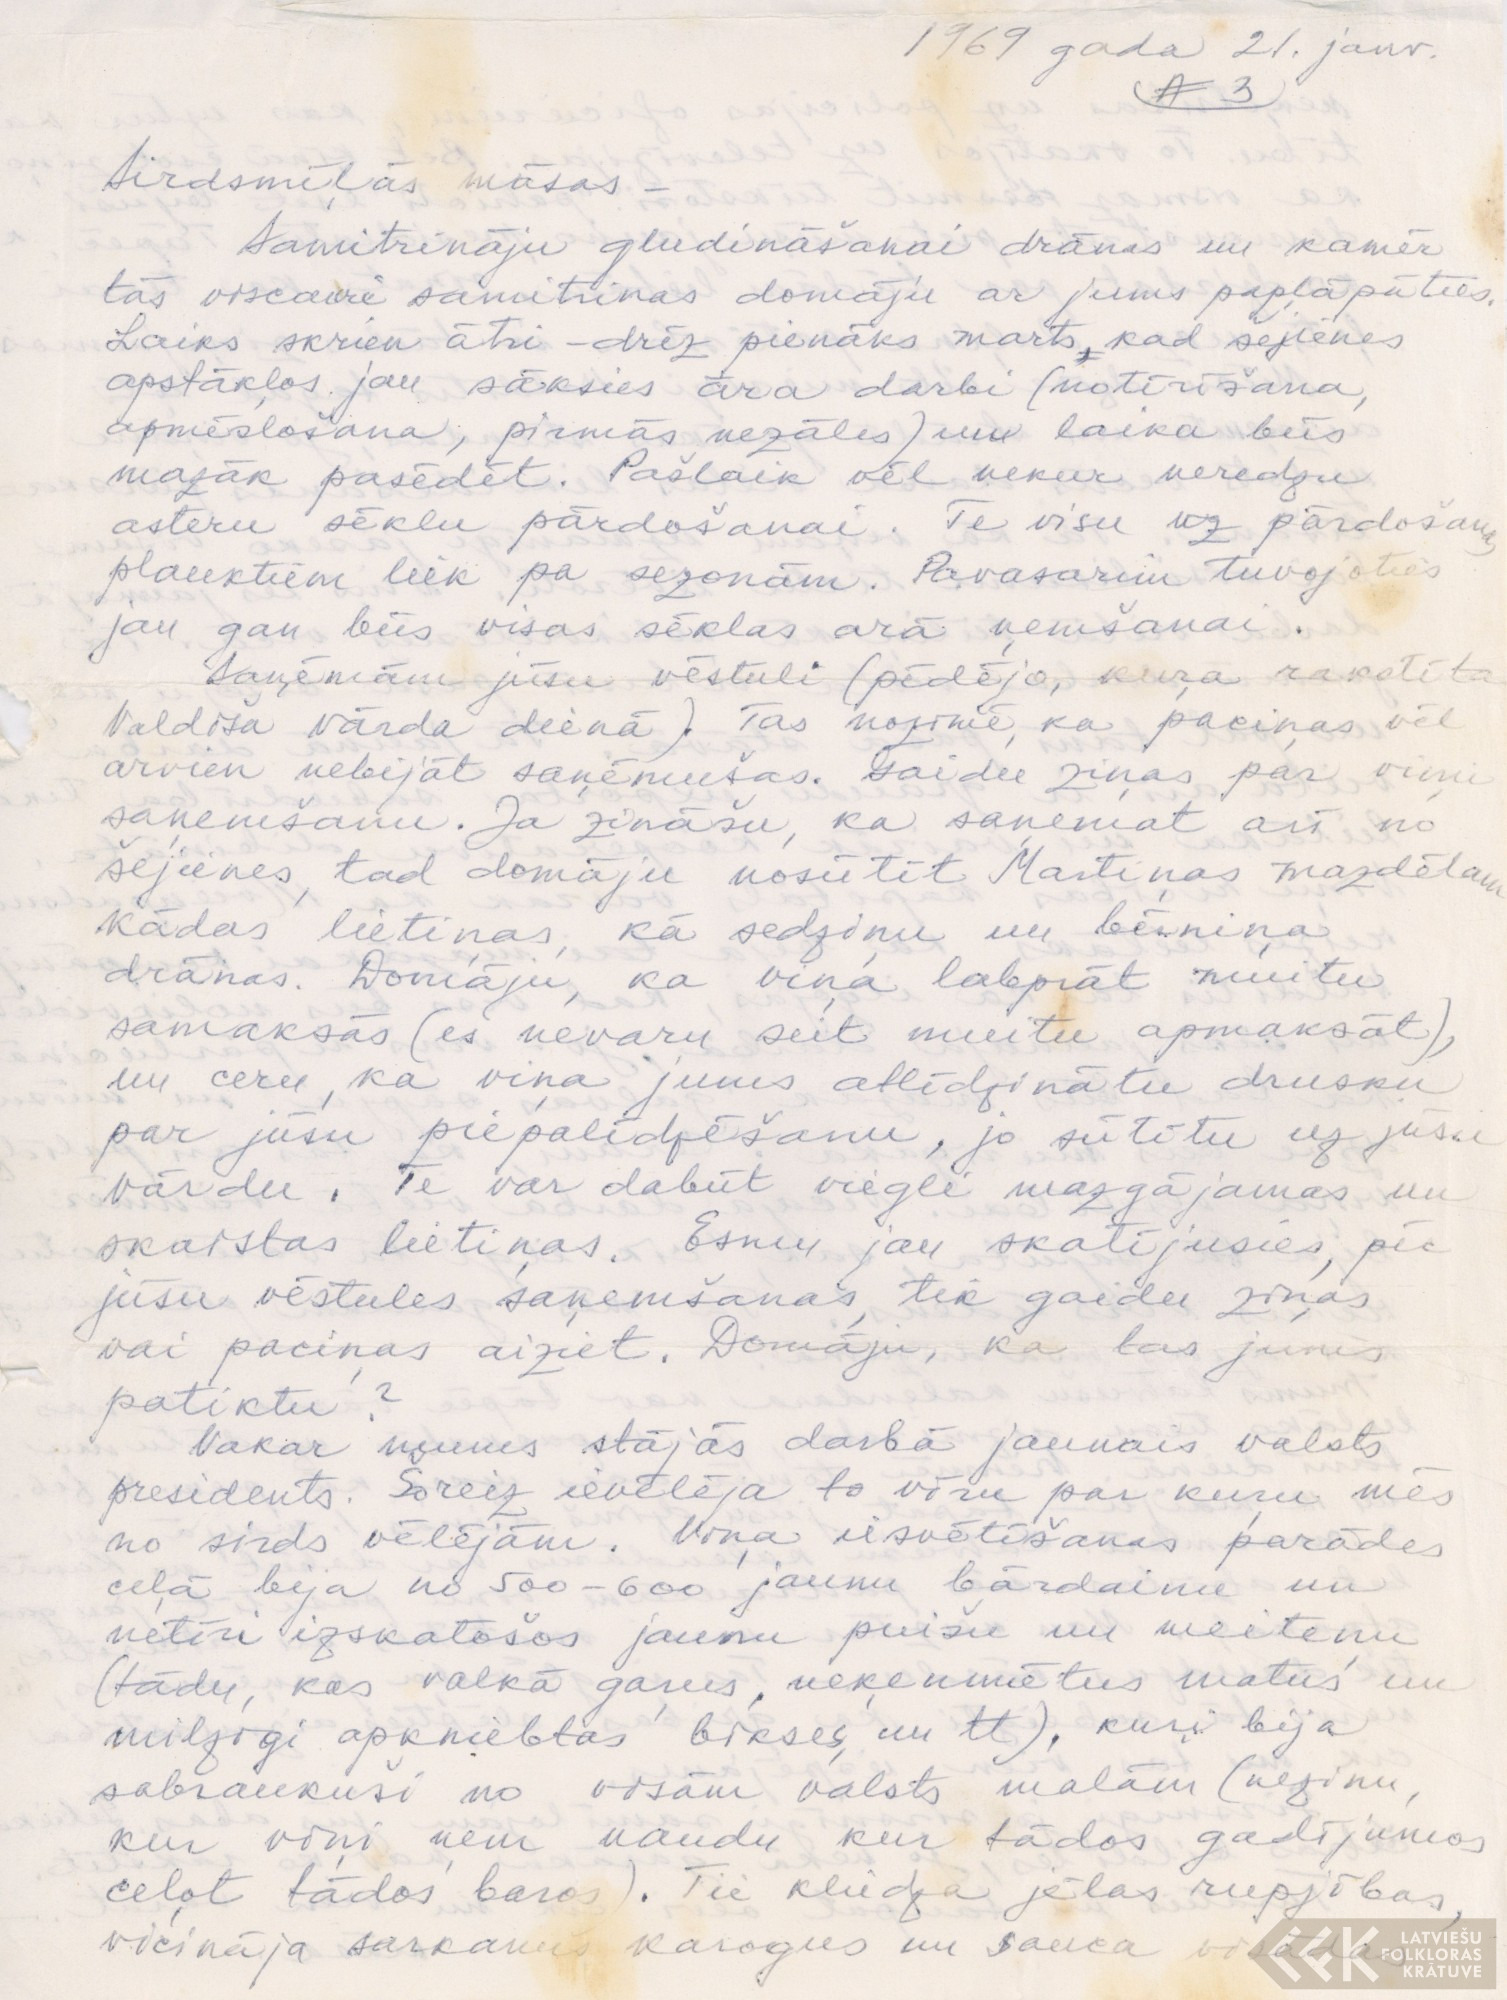 1969 gada 21. janv.
# 3
Sirdsmīļās māsas –
Samitrināju gludināšanai drānas un kamēr
tās viscauri samitrinas domāju ar jums papļāpāties.
Laiks skrien ātri – drīz pienāks marts, kad šejienes
apstākļos jau sāksies āra darbi (notīrīšana,
apmēslošana, pirmās nezāles) un laika būs
mazāk pasēdēt. Pašlaik vēl nekur neredzu
asteru sēklu pārdošanai. Te visu uz pārdošanas
plauktiem liek pa sezonām. Pavasarim tuvojoties
jau gan būs visas sēklas ārā ņemšanai.
Saņēmām jūsu vēstuli (pēdējo, kuŗa rakstīta
Valdiša vārda dienā). Tas nozīmē, ka paciņas vēl
arvien nebijāt saņēmušas. Gaidu ziņas par viņu
saņemšanu. Ja zināšu, ka saņemat arī no
šejienes, tad domāju nosūtīt Martiņas mazdēlam
kādas lietiņas, kā sedziņu un bērniņa
drānas. Domāju, ka viņa labprāt muitu
samaksās (es nevaru šeit muitu apmaksāt),
un ceru, ka viņa jums atlīdzinātu drusku
par jūsu piepalīdzēšanu, jo sūtītu uz jūsu
vārdu. Te var dabūt viegli mazgājamas un
skaistas lietiņas. Esmu jau skatījusies, pēc
jūsu vēstules saņemšanas, tik gaidu ziņas
vai paciņas aiziet. Domāju, ka tas jums
patiktu?
Vakar mums stājās darbā jaunais valsts
presidents. Šoreiz ievēlēja to vīru par kuŗu mēs
no sirds vēlējām. Viņa iesvētīšanas parādes
ceļā bija no 500–600 jaunu bārdainu un
netīri izskatošos jaunu puišu un meiteņu
(tādu, kas valkā gaŗus, neķemmētus matus un
milzīgi apknieblas bikses, un tt), kuŗi bija
sabraukuši no visām valsts malām (nezinu,
kur viņi ņem naudu kur tādos gadījumos
ceļot tādos baros). Tie kliedza jēlas rupjības,
vicināja sarkanus karogus un sauca visādas
LATVIEŠU
FOLKLORAS
KRĀTUVE